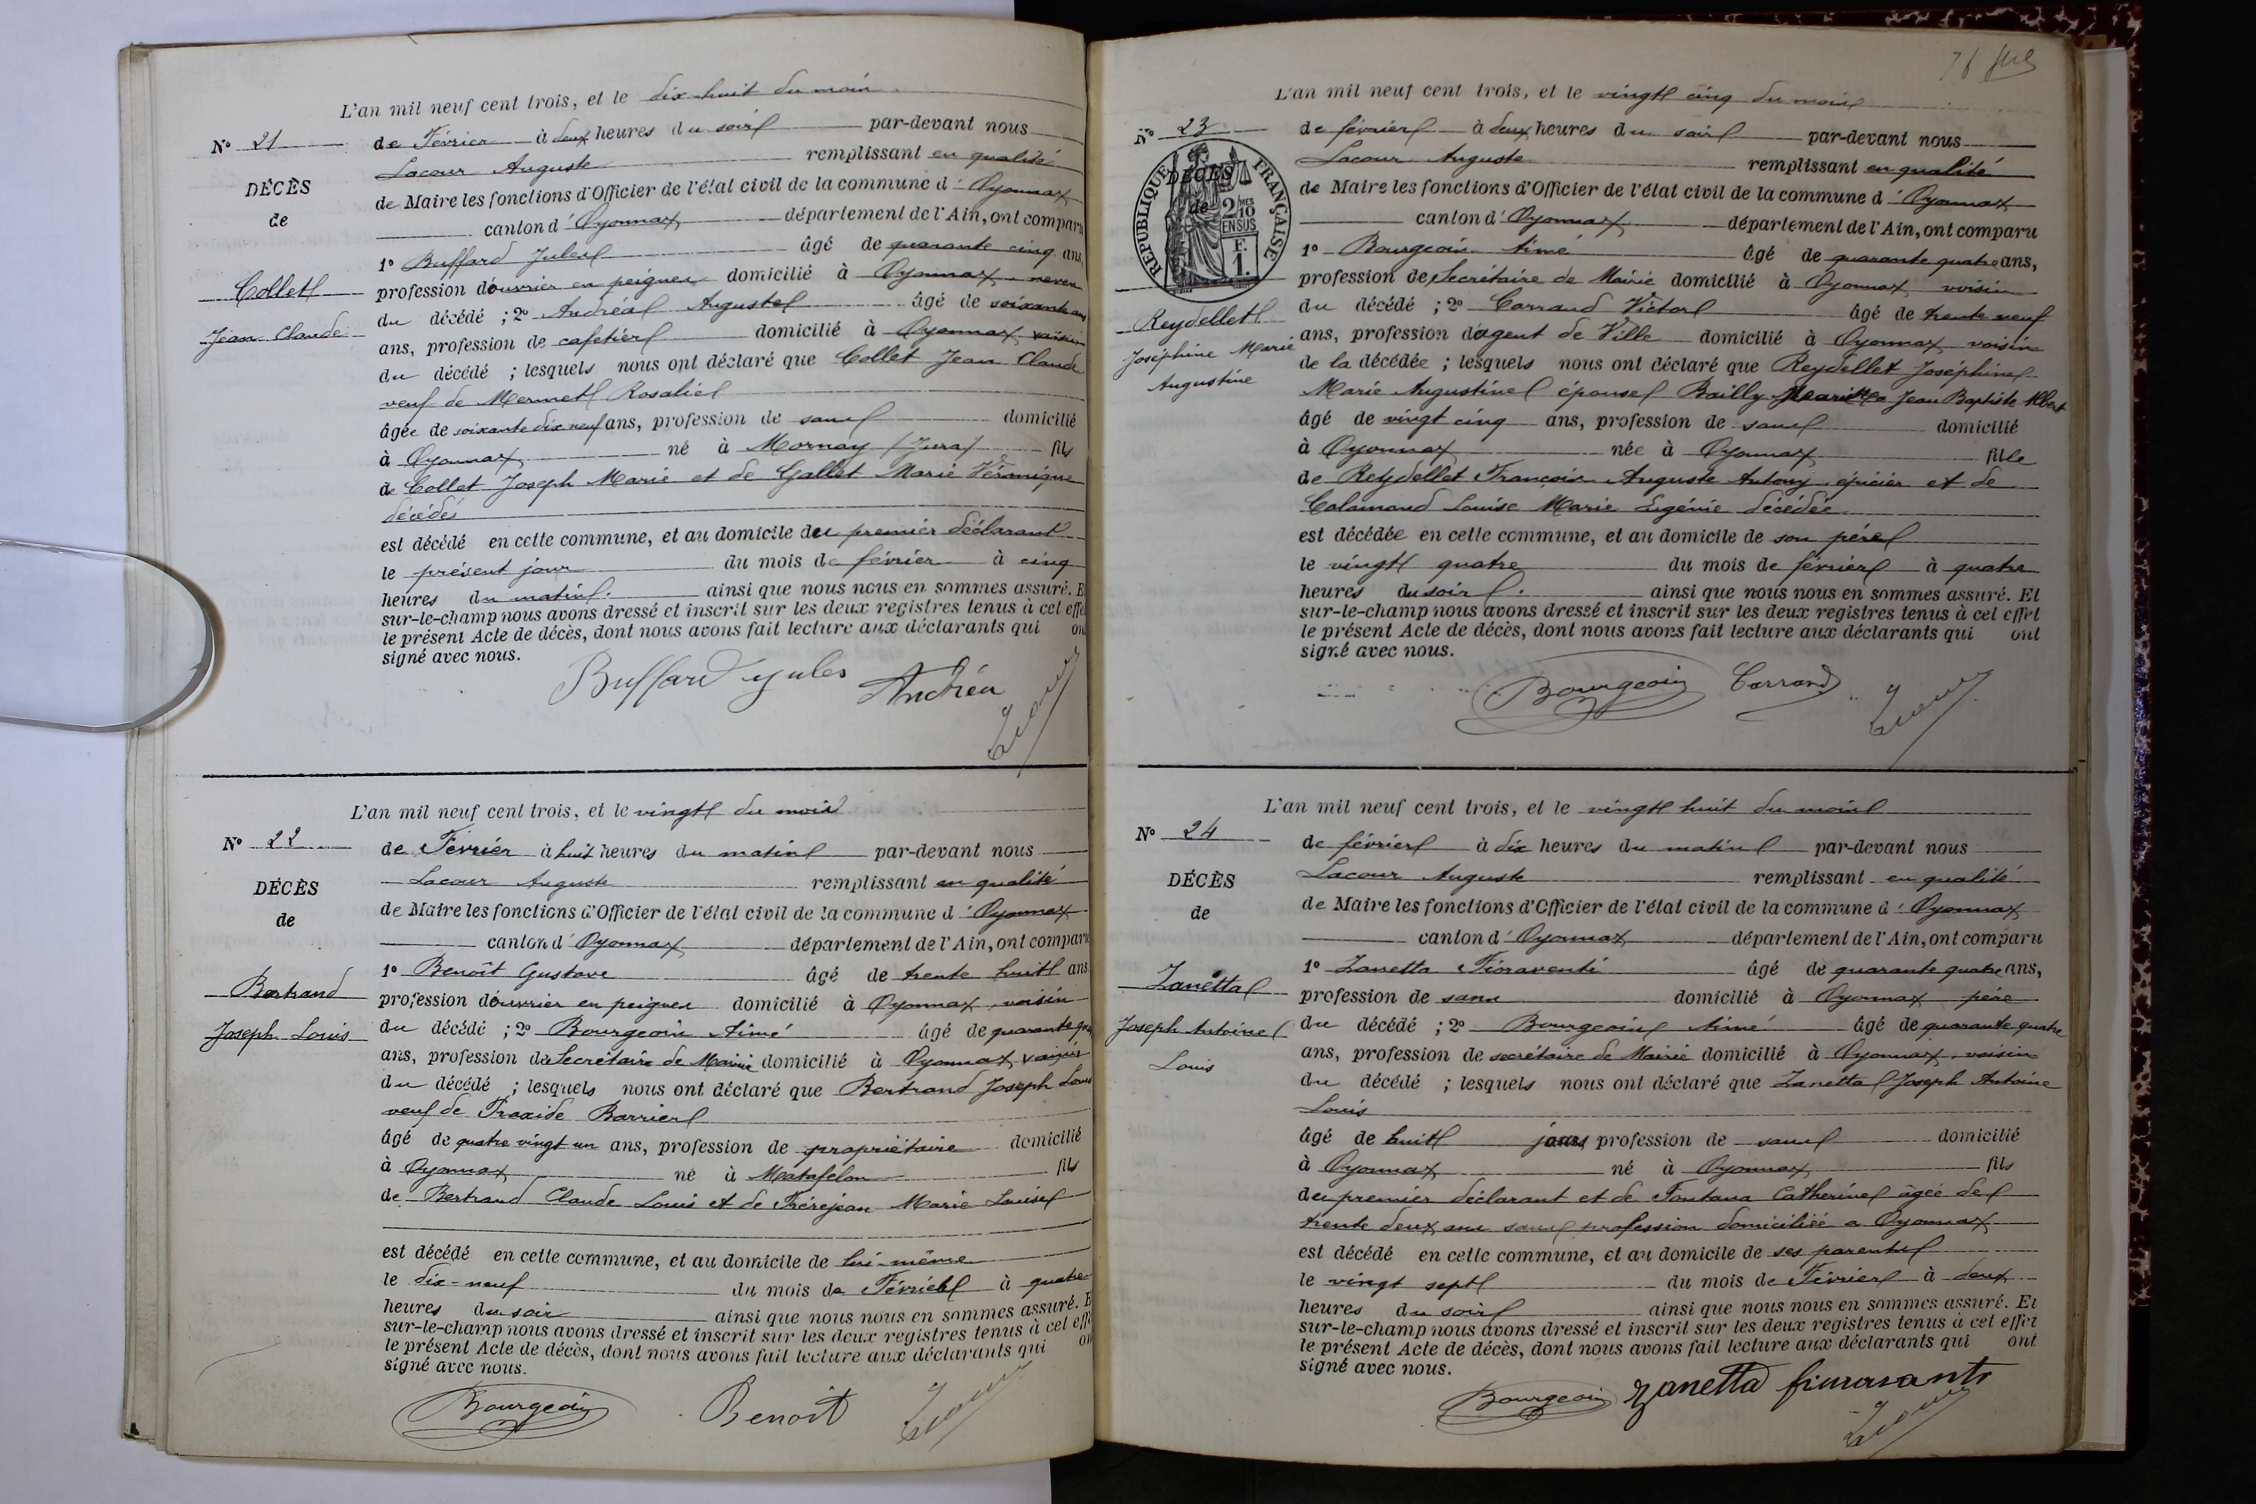 L'an mil neuf cent trois, et le dix huit du mois
N° 21
de Février à deux heures du soir par-devant nous
Lacour Auguste remplissant en qualité
DÉCÈS
de Maire les fonctions d'Officier de l'état civil de la commune d'Oyonnax
de
canton d'Oyonnax département de l'Ain, ont comparu
1° Buffard Jules âgé de quarante cinq ans,
Collet
profession d'ouvrier en peignes domicilié à Oyonnax neveu
du décédé ; 2° Andréa Auguste âgé de soixante
Jean Claude
ans, profession de cafetier domicilié à Oyonnax voisin
du décédé ; lesquels nous ont déclaré que Collet Jean Claude
veuf de Mermet Rosalie
âgée de soixante dix neuf ans, profession de sans domicilié
à Oyonnax né à Mornay (Jura) fils
de Collet Joseph Marie et de Gallet Marie Véronique
décédés
est décédé en cette commune, et au domicile du premier déclarant
le présent jour du mois de février à cinq
heures du matin. ainsi que nous nous en sommes assuré. E
sur-le-champ nous avons dressé et inscrit sur les deux registres tenus à cet effe
le présent Acte de décès, dont nous avons fait lecture aux déclarants qui on
signé avec nous.
Buffard Jules Andréa
Lacour
L'an mil neuf cent trois, et le vingt du mois
N° 22
de Février à huit heures du matin par-devant nous
Lacour Auguste remplissant en qualité
DÉCÈS
de Maire les fonctions d'Officier de l'état civil de la commune d'Oyonnax
de
canton d'Oyonnax département de l'Ain, ont comparu
1° Benoît Gustave âgé de trente huit ans
Bertrand
profession d'ouvrier en peignes domicilié à Oyonnax, voisin
Joseph Louis
du décédé ; 2° Bourgeois Aimé âgé de quarante
ans, profession de Secrétaire de Mairie domicilié à Oyonnax, voisin
du décédé ; lesquels nous ont déclaré que Bertrand Joseph Louis
veuf de Praxide Barrier
âgé de quatre vingt un ans, profession de propriétaire domicilié
à Oyonnax né à Matafelon fils
de Bertrand Claude Louis et de Frèrejean Marie Louise
est décédé en cette commune, et au domicile de lui-même
le dix-neuf du mois de Février à quatre
heures du soir ainsi que nous nous en sommes assuré. E
sur-le-champ nous avons dressé et inscrit sur les deux registres tenus à cet effe
le présent Acte de décès, dont nous avons fait lecture aux déclarants qui on
signé avec nous.
Bourgeois Benoit Lacour
L'an mil neuf cent trois, et le vingt cinq du mois
N° 23
de février à deux heures du soir par-devant nous
Lacour Auguste remplissant en qualité
RÉPUBLIQUE FRANÇAISE
2/10 EN SUS
F. 1.
DÉCÈS
de Maire les fonctions d'Officier de l'état civil de la commune d'Oyonnax
de
canton d'Oyonnax département de l'Ain, ont comparu
1° Bourgeois Aimé âgé de quarante quatre ans,
profession de Secrétaire de Mairie domicilié à Oyonnax voisin
Reydellet
du décédé ; 2° Carrand Victor âgé de trente neuf
Joséphine Marie
ans, profession d'agent de Ville domicilié à Oyonnax voisin
Augustine
de la décédée ; lesquels nous ont déclaré que Reydellet Joséphine
Marie Augustine épouse Bailly Jean Baptiste Albert
âgé de vingt cinq ans, profession de sans domicilié
à Oyonnax née à Oyonnax fille
de Reydellet François Auguste Antony épicier et de
Calamand Louise Marie Eugénie décédée
est décédée en cette commune, et au domicile de son père
le vingt quatre du mois de février à quatre
heures du soir. ainsi que nous nous en sommes assuré. Et
sur-le-champ nous avons dressé et inscrit sur les deux registres tenus à cet effet
le présent Acte de décès, dont nous avons fait lecture aux déclarants qui ont
signé avec nous.
Bourgeois Carrand Lacour
L'an mil neuf cent trois, et le vingt huit du mois
N° 24
de février à dix heures du matin par-devant nous
Lacour Auguste remplissant en qualité
DÉCÈS
de Maire les fonctions d'Officier de l'état civil de la commune d'Oyonnax
de
canton d'Oyonnax département de l'Ain, ont comparu
1° Zanetta Fioraventi âgé de quarante quatre ans,
Zanetta
profession de sans domicilié à Oyonnax père
Joseph Antoine
du décédé ; 2° Bourgeois Aimé âgé de quarante quatre
Louis
ans, profession de secrétaire de Mairie domicilié à Oyonnax, voisin
du décédé ; lesquels nous ont déclaré que Zanetta Joseph Antoine
Louis
âgé de huit jours profession de sans domicilié
à Oyonnax né à Oyonnax fils
du premier déclarant et de Fontana Catherine âgée de
trente deux ans sans profession domiciliée a Oyonnax
est décédé en cette commune, et au domicile de ses parents
le vingt sept du mois de Février à deux
heures du soir ainsi que nous nous en sommes assuré. Et
sur-le-champ nous avons dressé et inscrit sur les deux registres tenus à cet effet
le présent Acte de décès, dont nous avons fait lecture aux déclarants qui ont
signé avec nous.
Bourgeois Zanetta Lacour